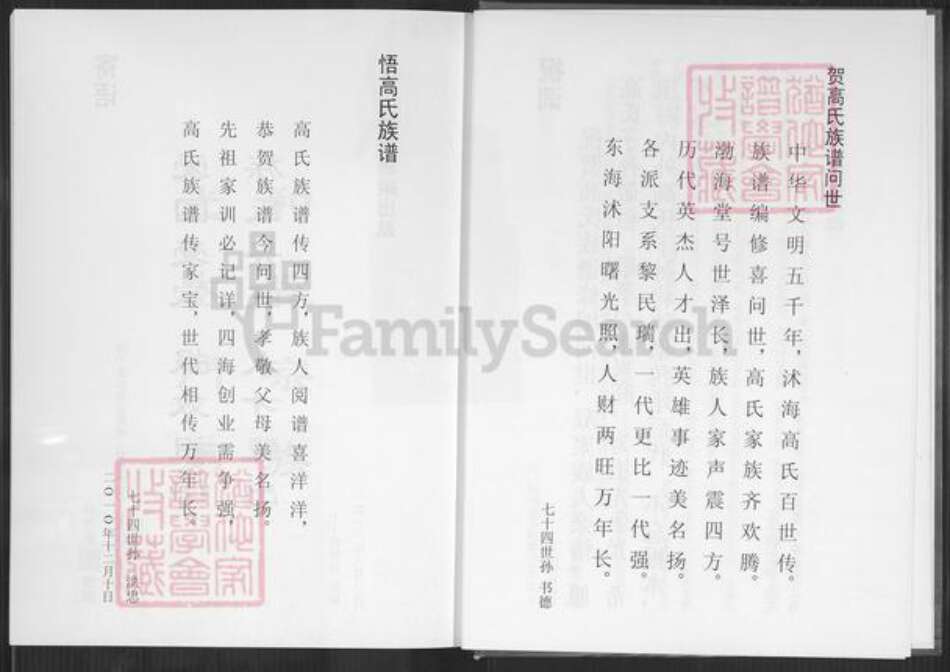 贺高氏族谱问世
中华文明五千年，沭海高氏百世传。
族谱编修喜问世，高氏家族齐欢腾。
渤海堂号世泽长，族人家声震四方。
历代英杰人才出，英雄事迹美名扬。
各派支系黎民瑞，一代更比一代强。
东海沭阳曙光照，人财两旺万年长。
七十四世孙 书德
悟高氏族谱
高氏族谱传四方，族人阅谱喜洋洋，
恭贺族谱今问世，孝敬父母美名扬。
先祖家训必记详，四海创业需争强，
高氏族谱传家宝，世代相传万年长。
七十四世孙
二〇一〇年十二月十日
FamilySearch